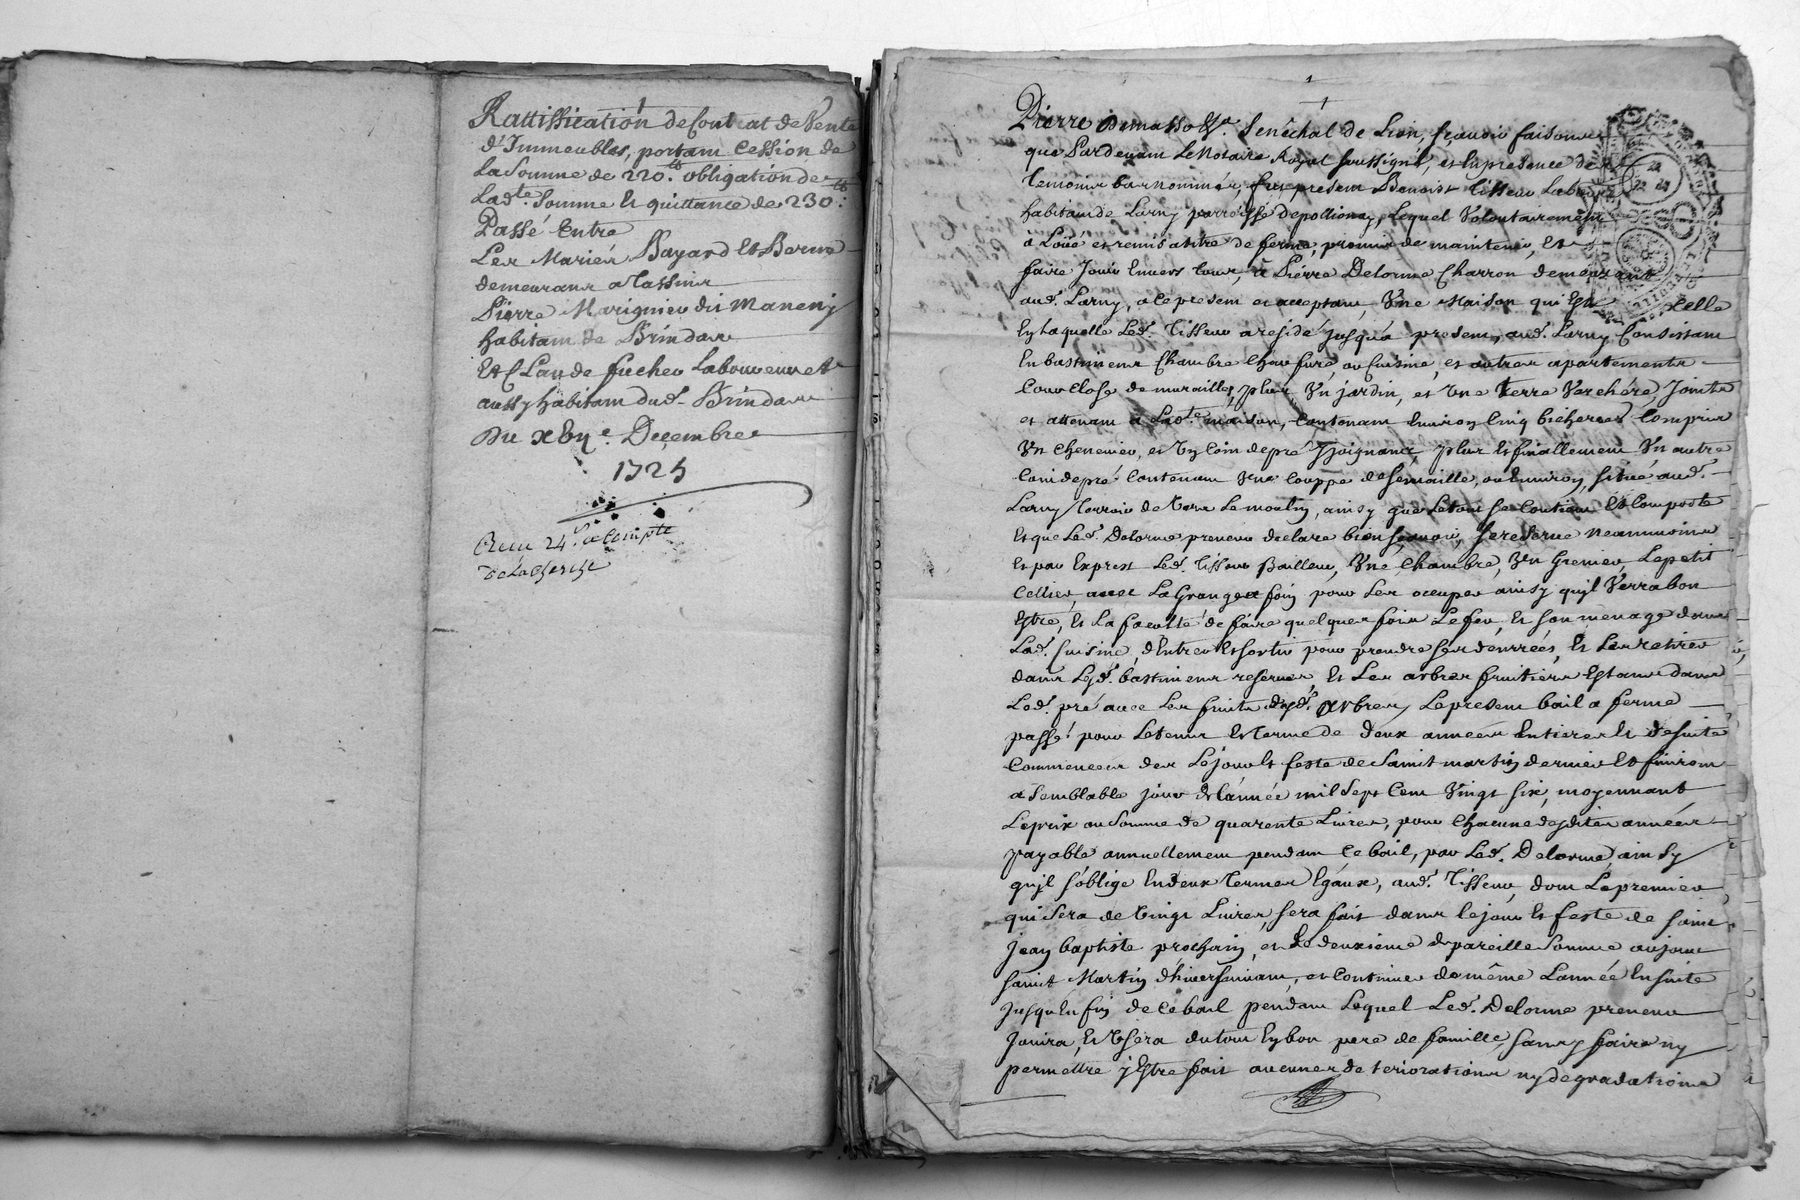 Rattiffication de Contrat de Vente
d'Immeubles, portant Cession de
La Somme de 220.tt obligation de
Lad.te Somme et quittance de 230.tt
Passé Entre
Les Mariés Bayard et
demeurans a Tassins
Pierre Marignier dit
habitant de Brindas
Et Claude fucher Laboureur et
aussy habitant dud. Brindas
Du xbre Decembre
1725
Receu 24.s a Compte
de La
1
Pierre Dumas &a. Senêchal de Lion, sçavoir faisons
que Pardevant Le Notaire Royal soussigné, et En presence des
temoins bas nommés, fut present Benoist Tisseur Laboureur
habitant de Larny parroisse de pollionay, Lequel Volontairement
à Loüé et remis a titre de ferme, promis de maintenir, Et
faire Joüir Envers tous, à Pierre Delorme Charron demeurant
aud. Larny, a ce present et acceptant, Une Maison qui Est Celle
En Laquelle Led. Tisseur a residé jusqu'à present, aud. Larny, Consistant
En bastiment Chambre Chauffure, ou Cuisine, et autres apartements
Cour Close de murailles, plus Un jardin, et Une terre Verchére Jointe
et attenant a Lad.te maison, Contenant Environ Cinq bicherees Compris
Un Chenevier, et Un Coin de pré Joignant, plus et finallement Un autre
Coin de pré Contenant Une Couppe de Semaille, ou Environ, situé aud.
Larny Terroir de Vers Le moulin, ainsy que Le tout se Contient Et Composte
Et que Led. Delorme preneur declare bien sçavoir, se reserve neammoins
Et par Exprest Led. Tisseur Bailleur, Une Chambre, Un Grenier, Le petit
Cellier, avec La Grange a foin pour Les occuper ainsy qu'jl Verra bon
Estre, Et La faculté de faire quelques fois Le feu, Et son menage dans
Lad. Cuisine, d'Entrer Et Sortir pour prendre ses denrrées, Et Les retirer
dans Lesd. bastiments reserves, Et Les arbres fruitiers Estans dans
Led. pré avec Les fruits desd. Arbres, Le present bail a ferme
passé pour Le tems Et Terme de deux années Entieres Et de suite
Commencees des Le jour Et feste de Saint martin dernier Et finiront
a Semblable jour de L'année mil Sept Cent Vingt Six, moyennant
Le prix ou Somme de quarente Livres, pour Chacune desdites années
payable annuellement pendant Ce bail, par Led. Delorme, ainsy
qu'jl s'oblige En deux Termes Egaux, aud. Tisseur, dont Le premier
qui Sera de Vingt Livres, sera fait dans Le jour Et feste de Saint
Jean baptiste prochain, et Le deuxieme de pareille Somme au jour
Saint Martin d'hiver suivant, et Continuer de même L'année En suite
Jusqu'En fin de Ce bail pendant Lequel Led. Delorme preneur
Jouira, Et Usera du tout En bon pere de famille, sans y faire ny
permettre y Estre fait aucunes deteriorations ny degradations